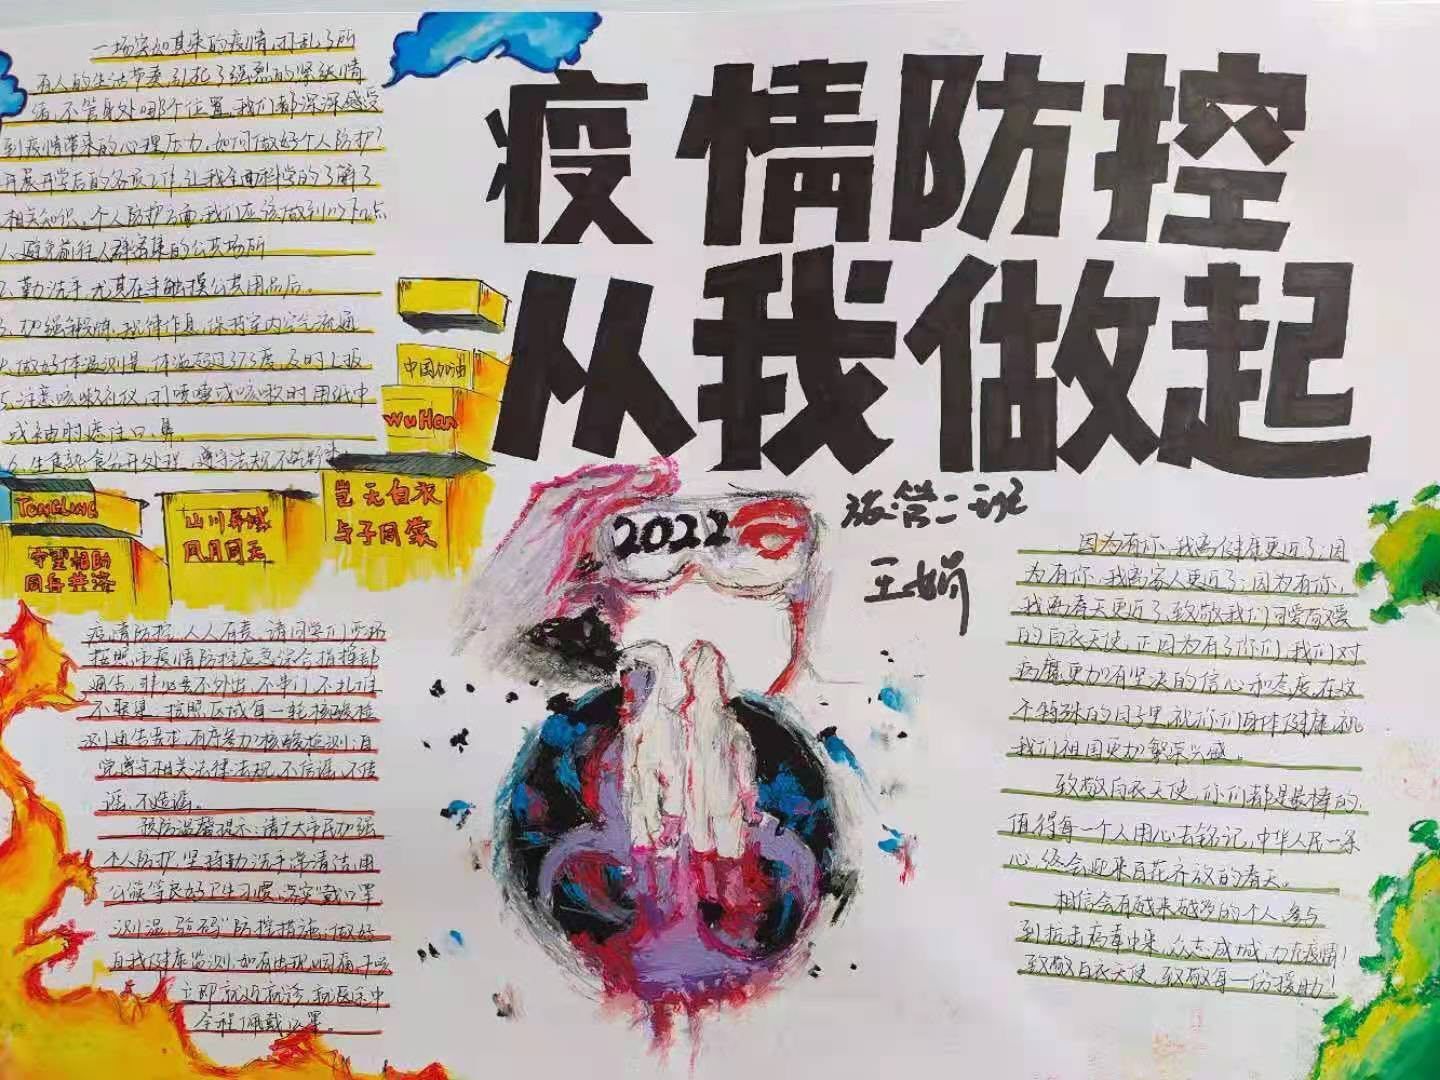 疫情防控
从我做起
一场突如其来的疫情,打乱了所
有人的生活节奏,引发了强烈的紧张情
绪,不管身处哪个位置,我们都深深感受
到疫情带来的心理压力。如何做好个人防护?
开展开学后的各项工作,让我全面科学的了解了
相关知识。个人防护方面,我们应该做到以下几点
1.避免前往人群密集的公共场所
2.勤洗手,尤其在手触摸公共用品后。
3.加强锻炼,规律作息,保持室内空气流通
4.做好体温测量,体温超过37.3度,及时上报
5.注意咳嗽礼仪,打喷嚏或咳嗽时用纸巾
或袖肘遮住口、鼻
6.生食熟食分开处理,遵守法规不吃野味
中国加油
WuHan
岂无白衣
与子同裳
TONGLING
守望相助
同舟共济
山川异域
风月同天
2022
张营二班
王娟
疫情防控,人人有责,请同学们严格
按照市疫情防控应急综合指挥部
通告,非必要不外出,不串门,不扎堆
不聚集,按照区域每一轮核酸检
测通告要求,有序参加核酸检测;自
觉遵守相关法律法规,不信谣,不传
谣,不造谣。
预防温馨提示:请广大市民加强
个人防护,坚持勤洗手、常清洁、用
公筷等良好卫生习惯,落实“戴口罩
测温,验码”防控措施,做好
自我健康监测,如有出现咽痛,干咳
立即就近就诊,就医途中
全程佩戴口罩。
因为有你,我离健康更近了;因
为有你,我离家人更近了;因为有你,
我离春天更近了,致敬我们可爱可敬
的白衣天使,正因为有了你们,我们对
病魔更加有坚决的信心和态度,在这
个特殊的日子里,祝你们身体健康,祝
我们祖国更加繁荣兴盛。
致敬白衣天使,你们都是最棒的,
值得每一个人用心去铭记,中华人民一条
心,终会迎来百花齐放的春天。
相信会有越来越多的个人参与
到抗击病毒中来,众志成城,力克疫情!
致敬白衣天使,致敬每一份援助!